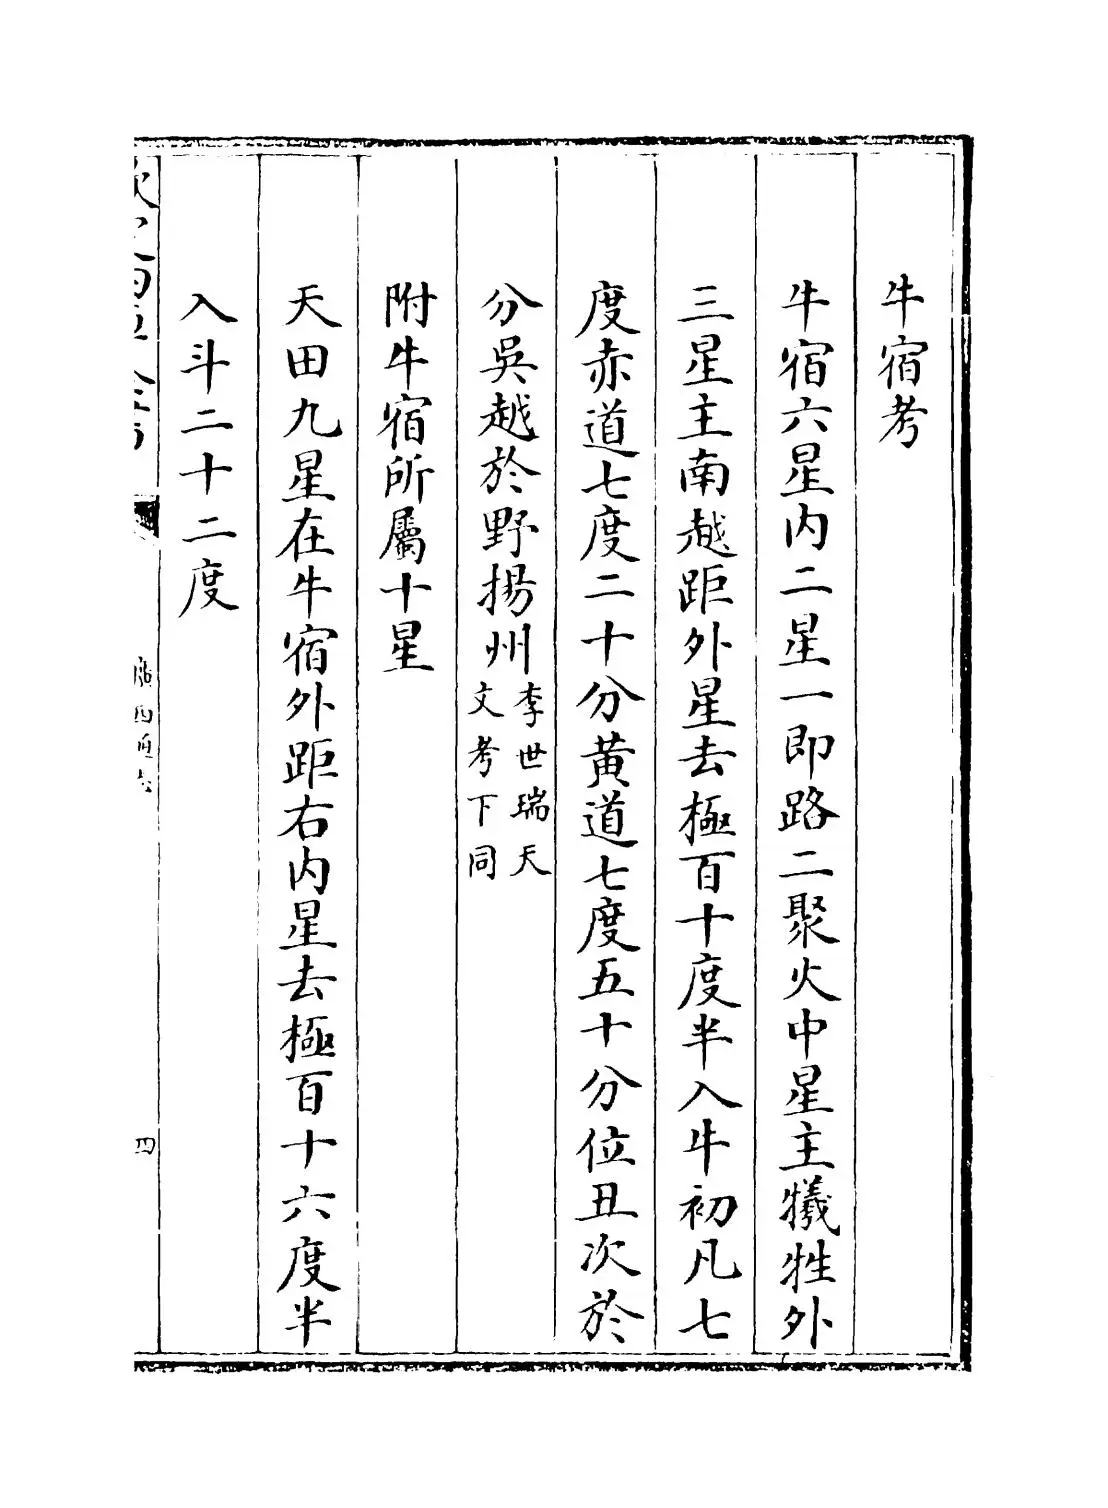 牛宿考
牛宿六星内二星一即路二聚火中星主犧牲外
三星主南越距外星去極百十度半入牛初凡七
度赤道七度二十分黄道七度五十分位丑次於
分吳越於野揚州李世瑞天
文考下同
附牛宿所屬十星
天田九星在牛宿外距右内星去極百十六度半
入斗二十二度
廣西通志
四